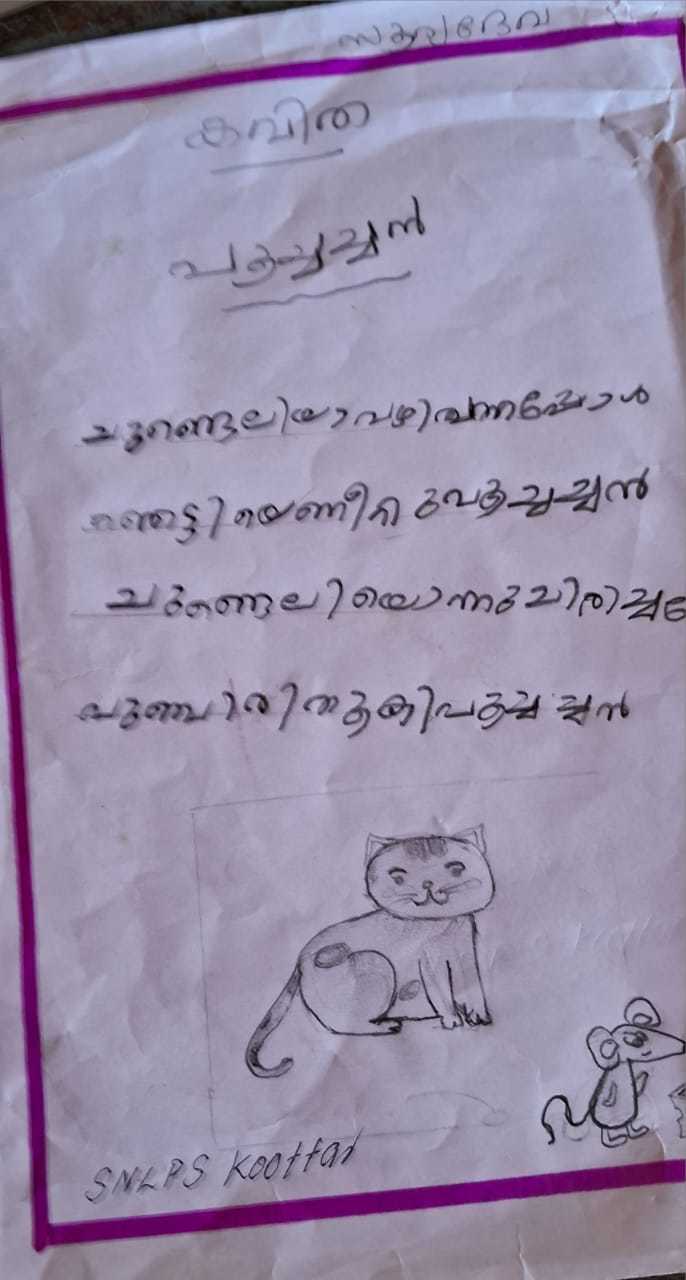 കവിത
പൂച്ചച്ചൻ
ചുണ്ടെലിയാവഴിവന്നപ്പോൾ
ഞെട്ടിയെണീറ്റുപൂച്ചച്ചൻ
ചുണ്ടെലിയൊന്നുചിരിച്ച
പുഞ്ചിരിതൂകിപൂച്ചച്ചൻ
SNLPS Koottar